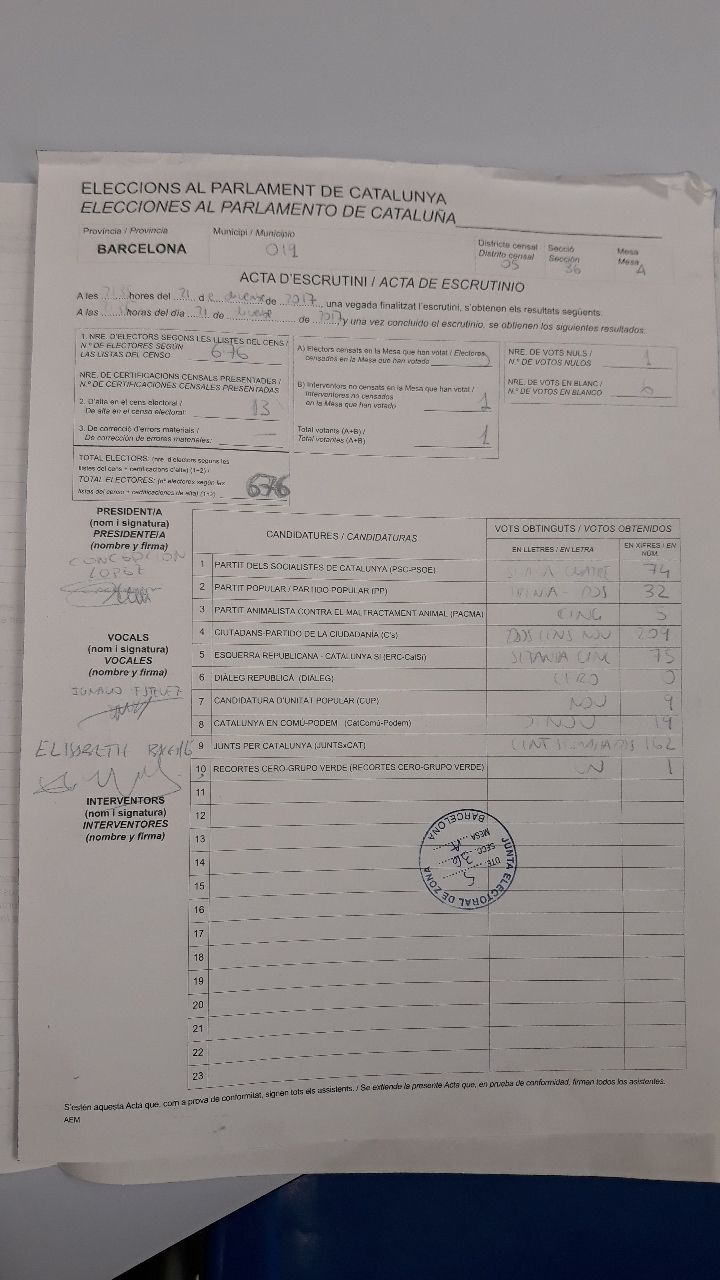 ELECCIONS AL PARLAMENT DE CATALUNYA
ELECCIONES AL PARLAMENTO DE CATALUÑA
Província / Provincia
Municipi / Municipio
Districte censal
Distrito censal
Secció
Sección
Mesa
Mesa
BARCELONA
019
05
36
A
ACTA D'ESCRUTINI / ACTA DE ESCRUTINIO
A les hores del 21 de 2017, una vegada finalitzat l'escrutini, s'obtenen els resultats següents.
A las horas del día 21 de de 2017 y una vez concluido el escrutinio, se obtienen los siguientes resultados:
1. NRE. D'ELECTORS SEGONS LES LLISTES DEL CENS /
N.º DE ELECTORES SEGÚN
LAS LISTAS DEL CENSO
676
NRE. DE CERTIFICACIONS CENSALS PRESENTADES /
N.º DE CERTIFICACIONES CENSALES PRESENTADAS
2. D'alta en el cens electoral /
De alta en el censo electoral:
13
3. De correcció d'errors materials /
De corrección de errores materiales:
TOTAL ELECTORS: (nre. d'electors segons les
llistes del cens + certificacions d'alta) (1+2) /
TOTAL ELECTORES: (nº electores según las
676
A) Electors censats en la Mesa que han votat / Electores
censados en la Mesa que han votado
B) Interventors no censats en la Mesa que han votat /
Interventores no censados
en la Mesa que han votado
1
Total votants (A+B) /
Total votantes (A+B)
1
NRE. DE VOTS NULS /
N.º DE VOTOS NULOS
1
NRE. DE VOTS EN BLANC /
N.º DE VOTOS EN BLANCO
PRESIDENT/A
(nom i signatura)
PRESIDENTE/A
(nombre y firma)
CONCEPCION
LOPEZ
VOCALS
(nom i signatura)
VOCALES
(nombre y firma)
IGNACIO
ELISABETH
INTERVENTORS
(nom i signatura)
INTERVENTORES
(nombre y firma)
CANDIDATURES / CANDIDATURAS
VOTS OBTINGUTS / VOTOS OBTENIDOS
EN LLETRES / EN LETRA
EN XIFRES / EN NÚM.
1 PARTIT DELS SOCIALISTES DE CATALUNYA (PSC-PSOE) 74
2 PARTIT POPULAR / PARTIDO POPULAR (PP) 32
3 PARTIT ANIMALISTA CONTRA EL MALTRACTAMENT ANIMAL (PACMA) CINC 5
4 CIUTADANS-PARTIDO DE LA CIUDADANÍA (C's) NOU 209
5 ESQUERRA REPUBLICANA - CATALUNYA SÍ (ERC-CatSí) 75
6 DIÀLEG REPUBLICÀ (DIÀLEG) 0
7 CANDIDATURA D'UNITAT POPULAR (CUP) NOU 9
8 CATALUNYA EN COMÚ-PODEM (CatComú-Podem) 19
9 JUNTS PER CATALUNYA (JUNTSxCAT) 162
10 RECORTES CERO-GRUPO VERDE (RECORTES CERO-GRUPO VERDE) UN 1
11
12
13
14
15
16
17
18
19
20
21
22
23
JUNTA ELECTORAL DE ZONA
BARCELONA
DTE. 5
SECC. 36
MESA A
S'estén aquesta Acta que, com a prova de conformitat, signen tots els assistents. / Se extiende la presente Acta que, en prueba de conformidad, firman todos los asistentes.
AEM